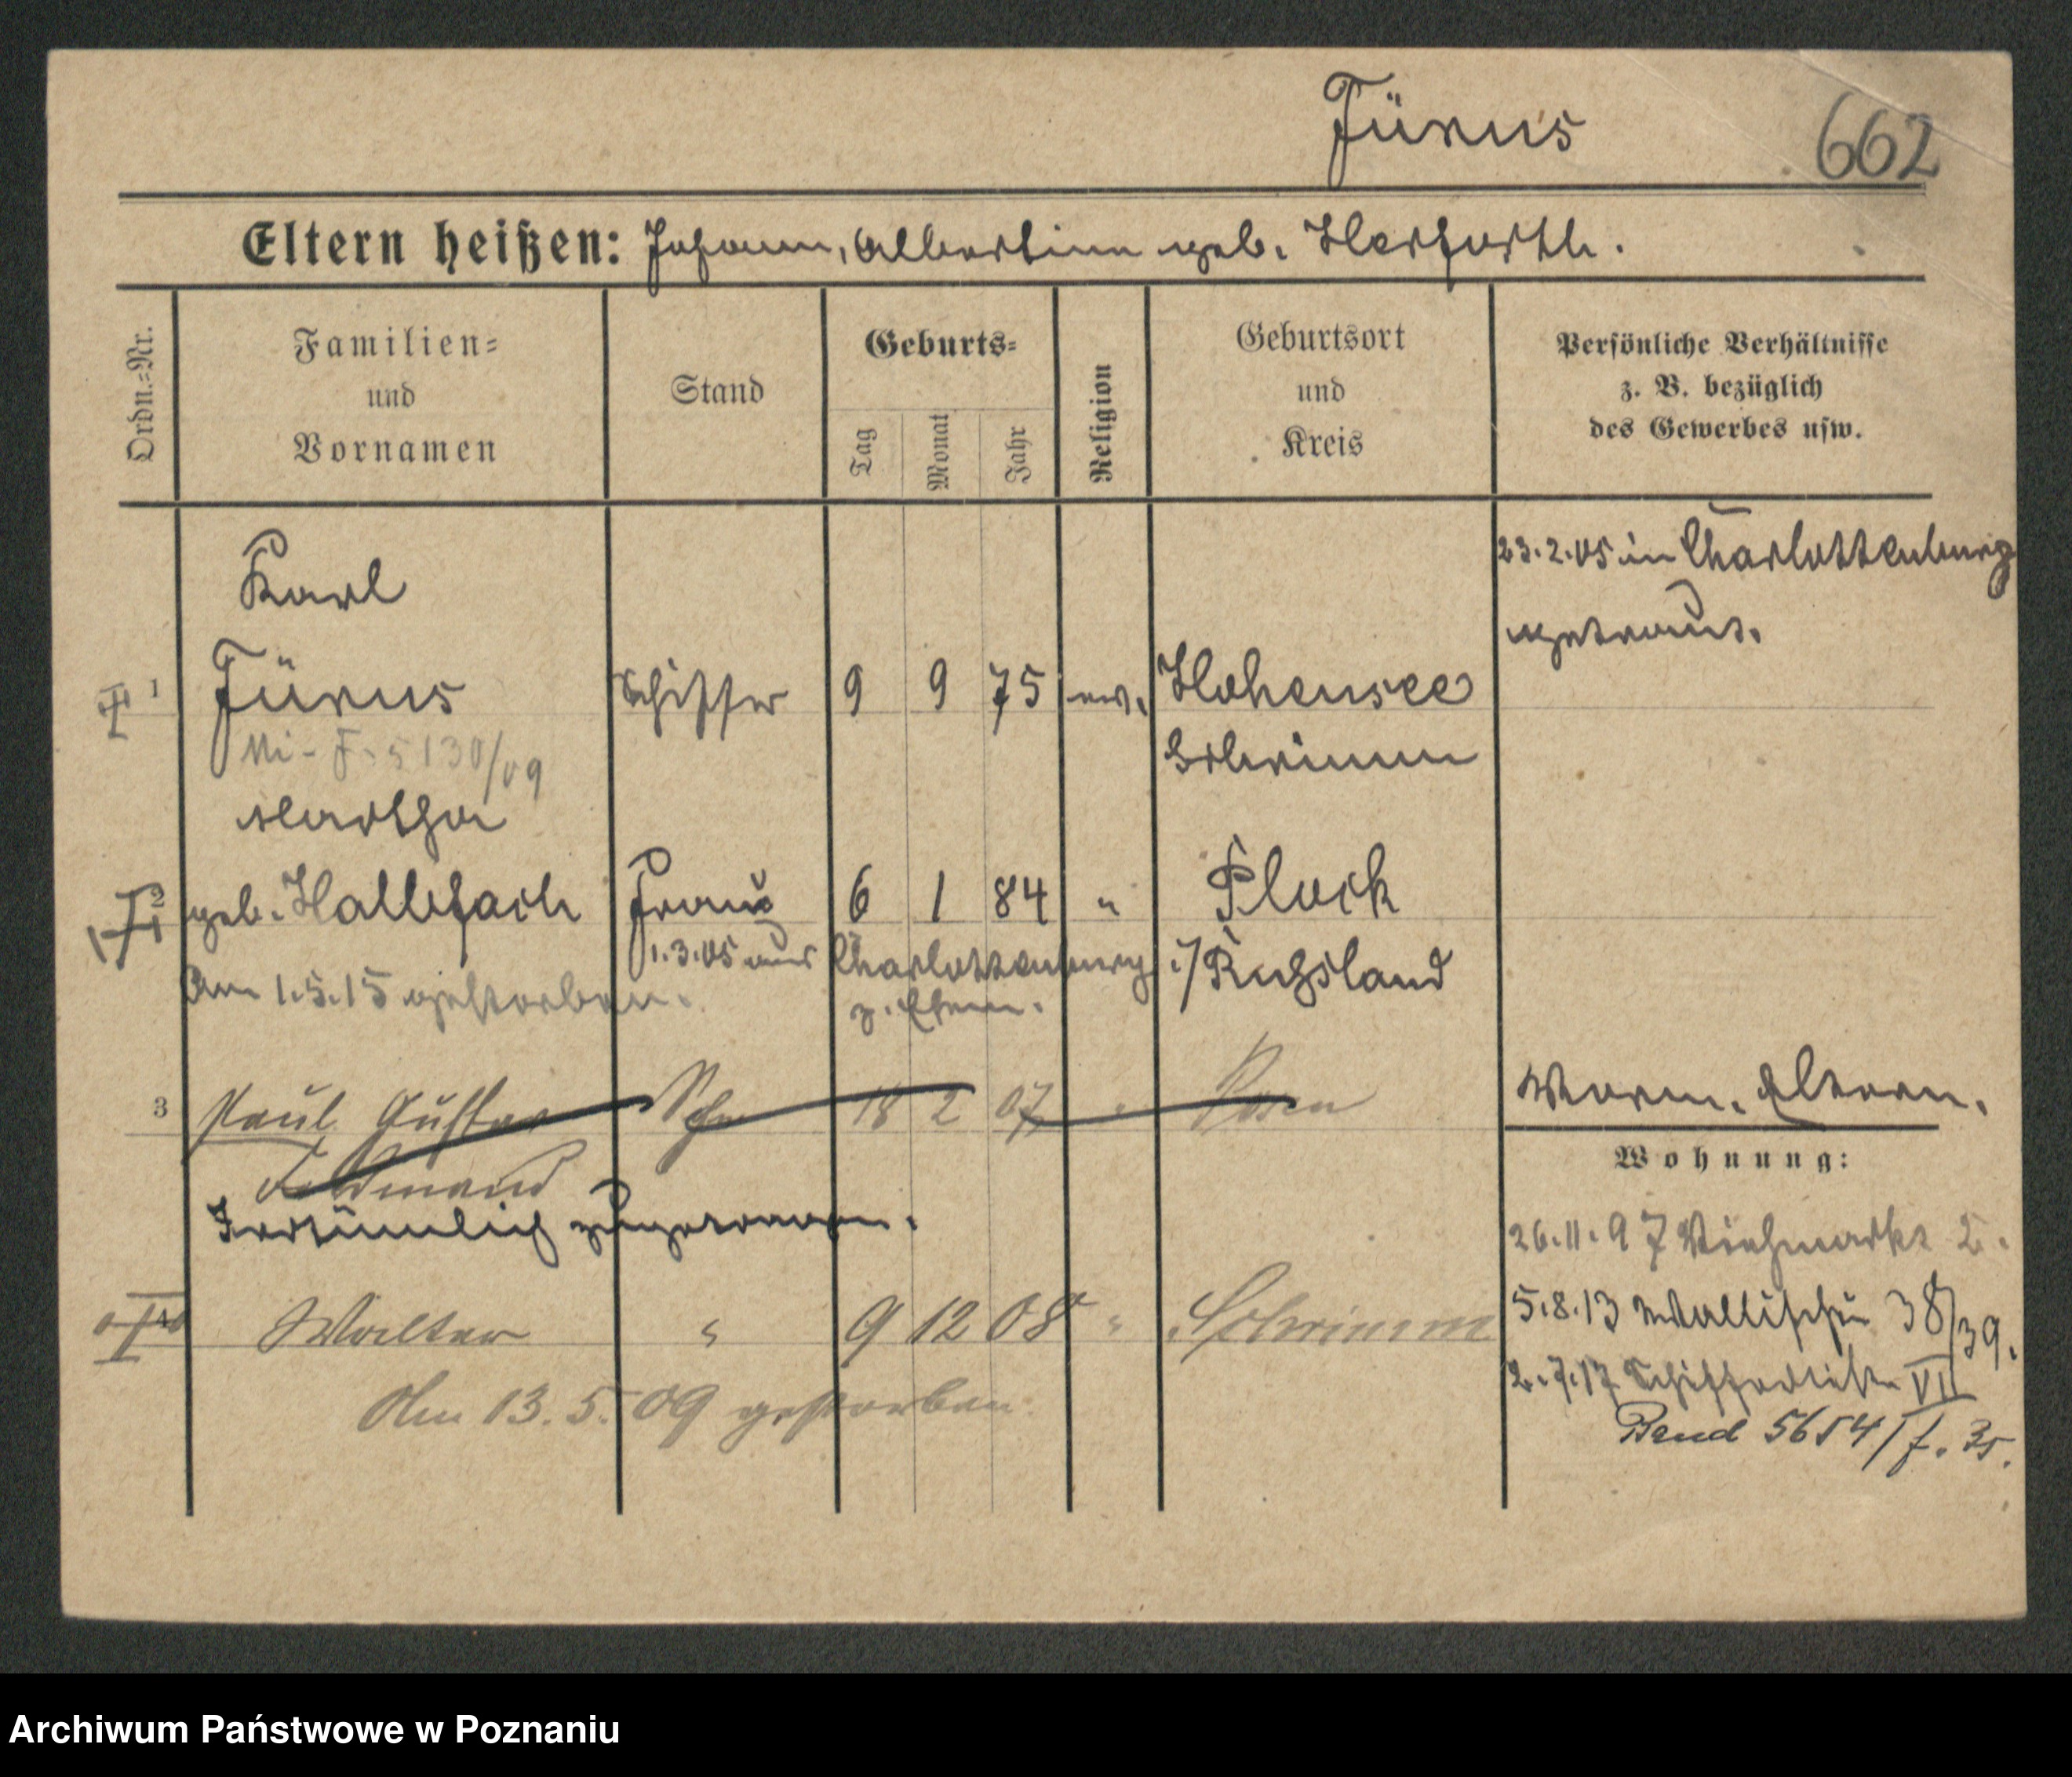 Fürus
662
Eltern heißen: Johann, Albertine geb. Herfurth.
Ordn.-Nr.
Familien- und Vornamen
Stand
Geburts-
Tag
Monat
Jahr
Religion
Geburtsort und Kreis
Persönliche Verhältnisse z. B. bezüglich des Gewerbes usw.
23.2.05 in Charlottenburg
getraut.
Karl
1 Fürus Schiffer 9 9 75 ev. Hohensee
Schrimm
5130/09
Martha
2 geb. Hallefach Frau 6 1 84 " Plock
1.3.05 aus Charlottenburg i/Rußland
Am 1.5.15 gestorben.
z. Ehem.
3 Paul Gustav 18 2 07 " Posen
Ferdinand
Irrtümlich zugetragen.
Worm. Eltern.
Wohnung:
26.11.97 Viehmarkt 2.
5.8.13 Wallischei 38/39.
2.7.17 Schifferliste VII
5654/
4 Walter " 9 12 08 " Schrimm
Am 13.5.09 gestorben
Archiwum Państwowe w Poznaniu